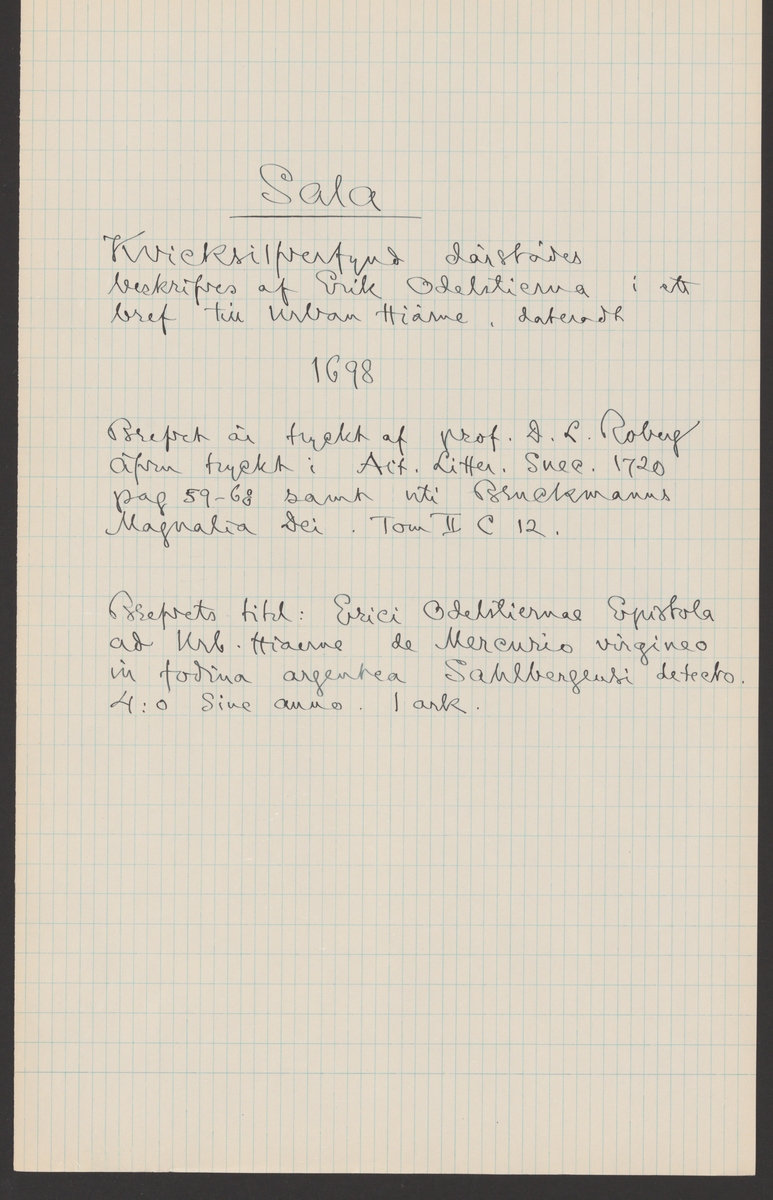 Sala
Kvicksilfverfynd därstädes
beskrifves af Erik Odelstierna i ett
bref till Urban Hiärne, dateradt
1698
Brefvet är tryckt af prof. D. L. Roberg
äfven tryckt i Act. Litter. Suec. 1720
pag 59-68 samt uti Bruckmanns
Magnalia Dei. Tom II C 12.
Brefvets titel: Erici Odelstiernae Epistola
ad Urb. Hiaerne de Mercurio virgineo
in fodina argentea Sahlbergensi detecto.
4:o Sine anno. 1 ark.